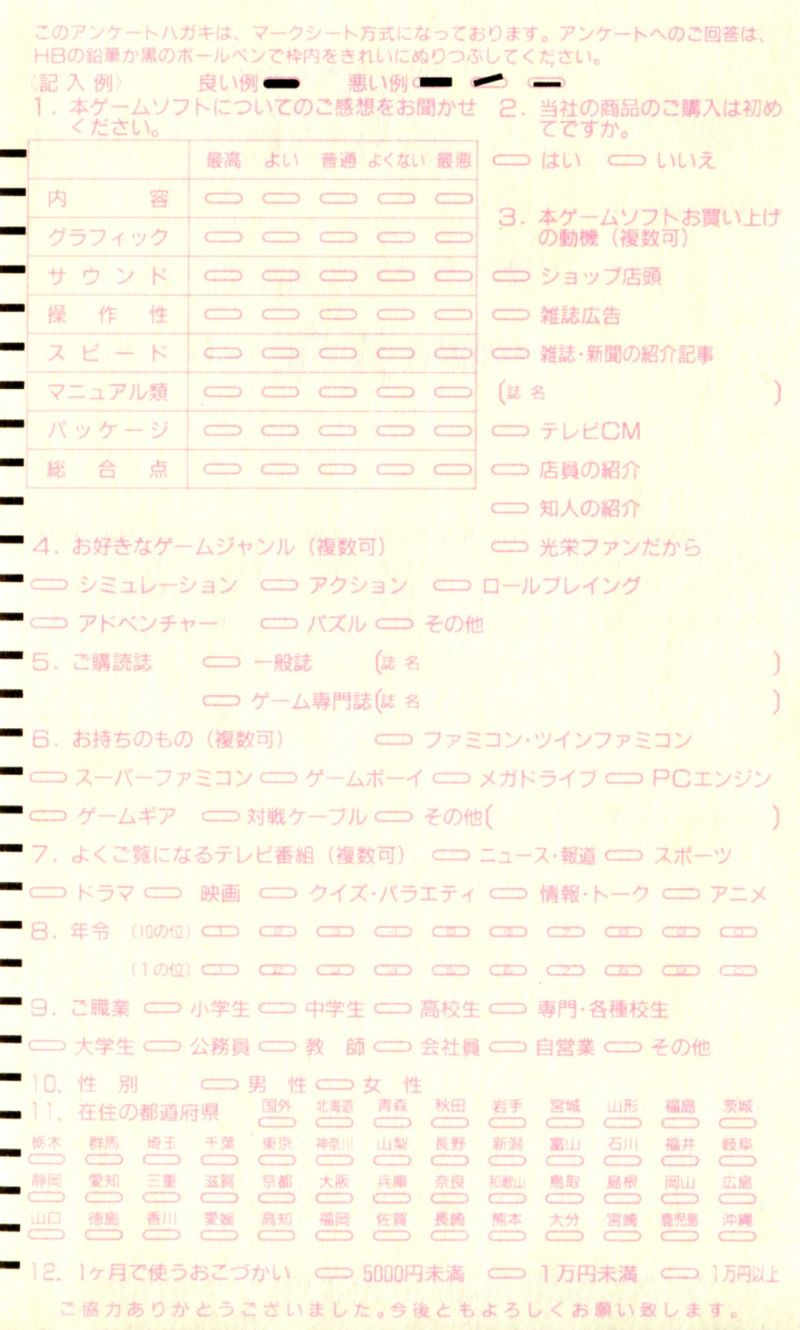 このアンケートハガキは、マークシート方式になっております。アンケートへのご回答は、
HBの鉛筆か黒のボールペンで枠内をきれいにぬりつぶしてください。
〈記入例〉 良い例 悪い例
1. 本ゲームソフトについてのご感想をお聞かせ
ください。
最高 よい 普通 よくない 最悪
内容
グラフィック
サウンド
操作性
スピード
マニュアル類
パッケージ
総合点
2. 当社の商品のご購入は初め
てですか。
はい いいえ
3. 本ゲームソフトお買い上げ
の動機（複数可）
ショップ店頭
雑誌広告
雑誌・新聞の紹介記事
(誌名 )
テレビCM
店員の紹介
知人の紹介
光栄ファンだから
4. お好きなゲームジャンル（複数可）
シミュレーション アクション ロールプレイング
アドベンチャー パズル その他
5. ご購読誌 一般誌 (誌名 )
ゲーム専門誌(誌名 )
6. お持ちのもの（複数可） ファミコン・ツインファミコン
スーパーファミコン ゲームボーイ メガドライブ PCエンジン
ゲームギア 対戦ケーブル その他( )
7. よくご覧になるテレビ番組（複数可） ニュース・報道 スポーツ
ドラマ 映画 クイズ・バラエティ 情報・トーク アニメ
8. 年令 (10の位) 1 2 3 4 5 6 7 8 9 0
(1の位) 1 2 3 4 5 6 7 8 9 0
9. ご職業 小学生 中学生 高校生 専門・各種校生
大学生 公務員 教師 会社員 自営業 その他
10. 性別 男性 女性
11. 在住の都道府県 国外 北海道 青森 秋田 岩手 宮城 山形 福島 茨城
栃木 群馬 埼玉 千葉 東京 神奈川 山梨 長野 新潟 富山 石川 福井 岐阜
静岡 愛知 三重 滋賀 京都 大阪 兵庫 奈良 和歌山 鳥取 島根 岡山 広島
山口 徳島 香川 愛媛 高知 福岡 佐賀 長崎 熊本 大分 宮崎 鹿児島 沖縄
12. 1ヶ月で使うおこづかい 5000円未満 1万円未満 1万円以上
ご協力ありがとうございました。今後ともよろしくお願い致します。